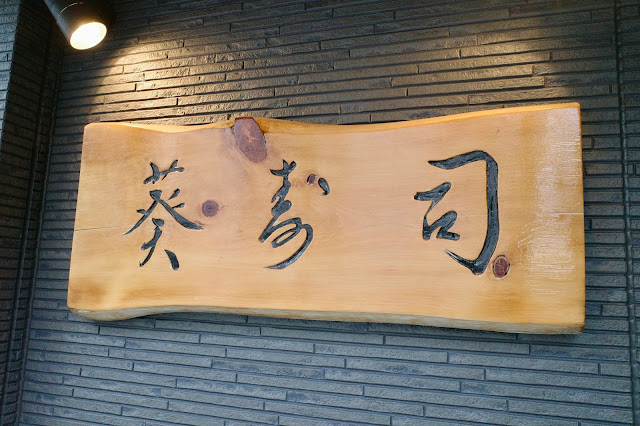 葵寿司